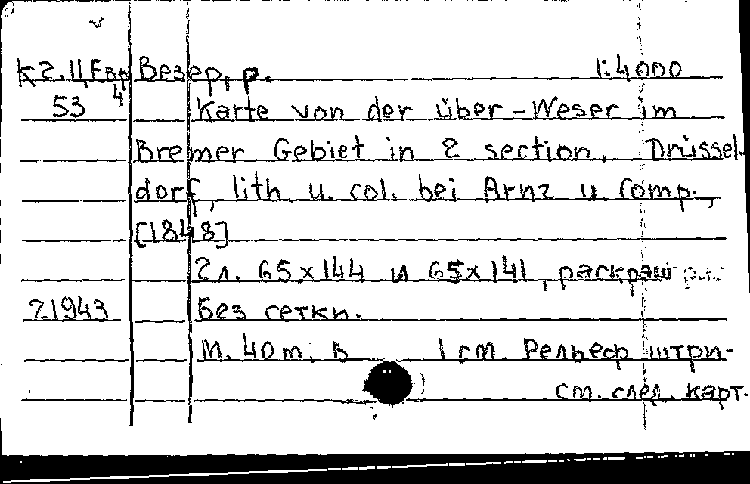 К2.ЦЕвр Везер, р. 1:4000
53 4 Karte von der über-Weser im
Bremer Gebiet in 2 section, Drüssel-
dorf, lith u. col. bei Arnz u. Comp.,
[1848]
2 л. 65x144 и 65x141, раскраш
21943 Без сетки.
М. 40 m. в 1 cm. Рельеф штри-
см. след. карт.